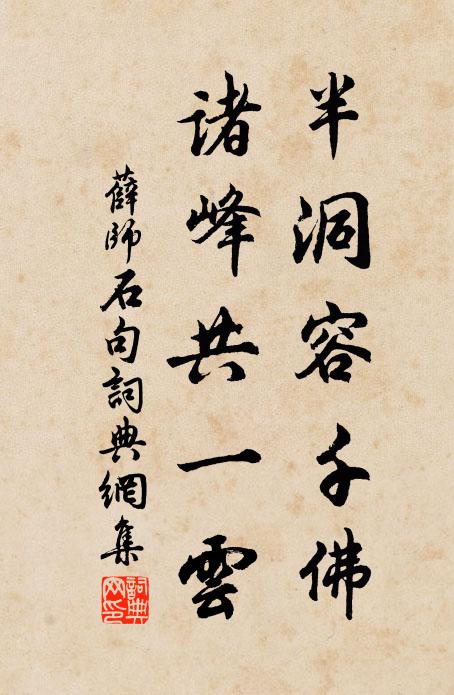 半洞容千佛
諸峰共一雲
薛師石句詞典網集
詞典
网印